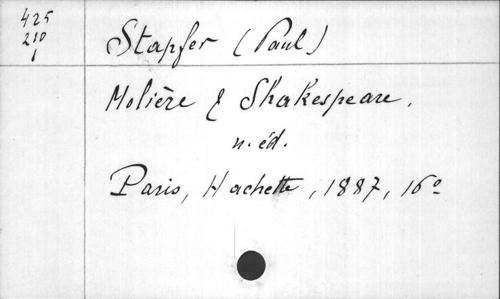 425
210
1
Stapfer (Paul)
Molière & Shakespeare.
n. éd.
Paris, Hachette, 1887, 16º